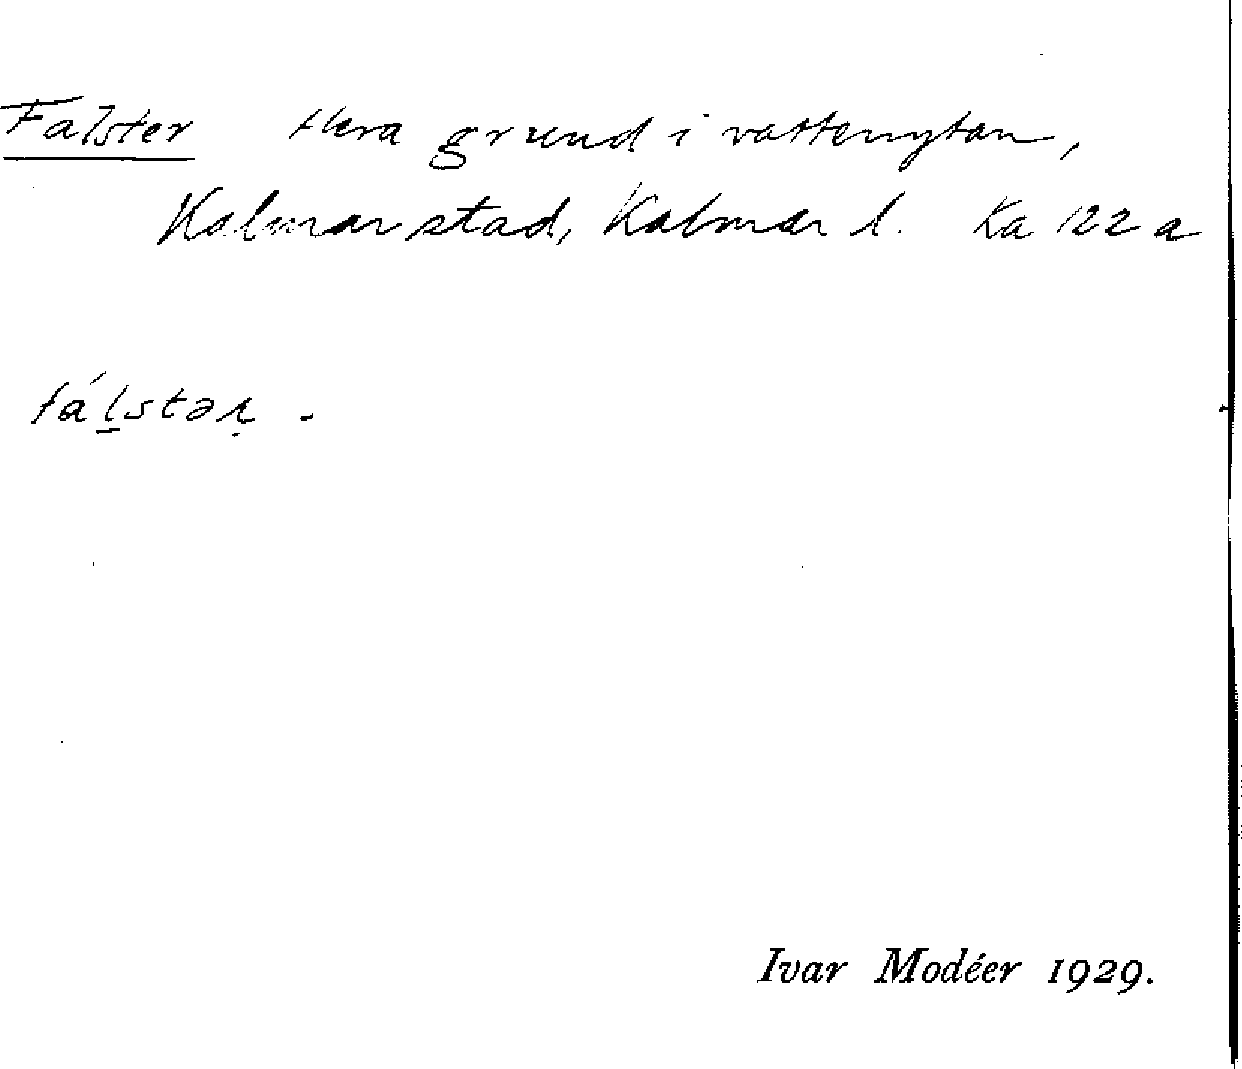 Falster flera grund i vattenytan,
Kalmar stad, Kalmar l. Ka 122 a
fálstər.
Ivar Modéer 1929.